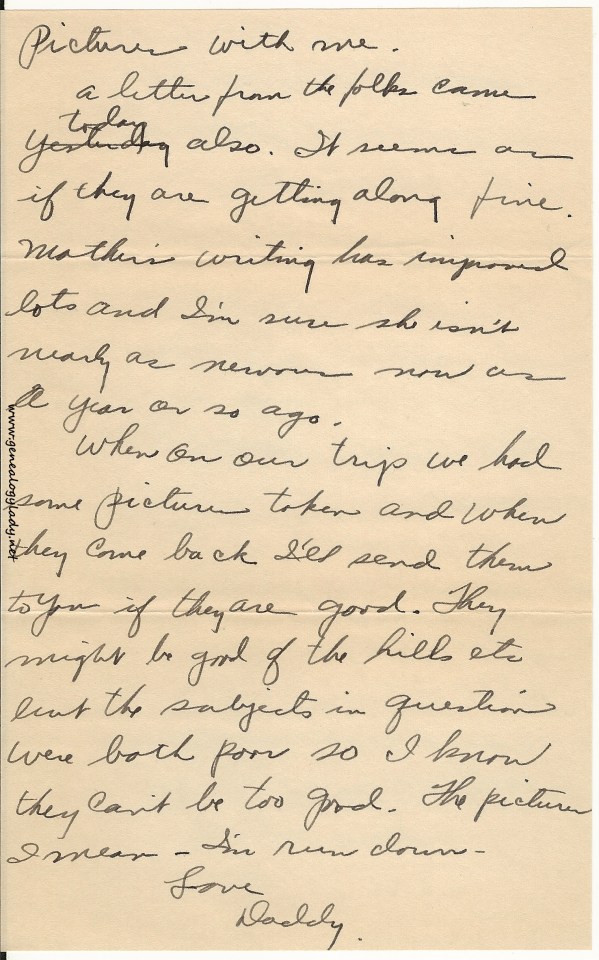 Pictures with me.
a letter from the folks came
today
yesterday also. It seems as
if they are getting along fine.
Mother's writing has improved
lots and I'm sure she isn't
nearly as nervous now as
a year or so ago.
When on our trip we had
some pictures taken and when
they come back I'll send them
to you if they are good. They
might be good of the hills etc
but the subjects in question
were both poor so I know
they can't be too good. The pictures
I mean - I'm run down -
Love
Daddy.
www.genealogylady.net